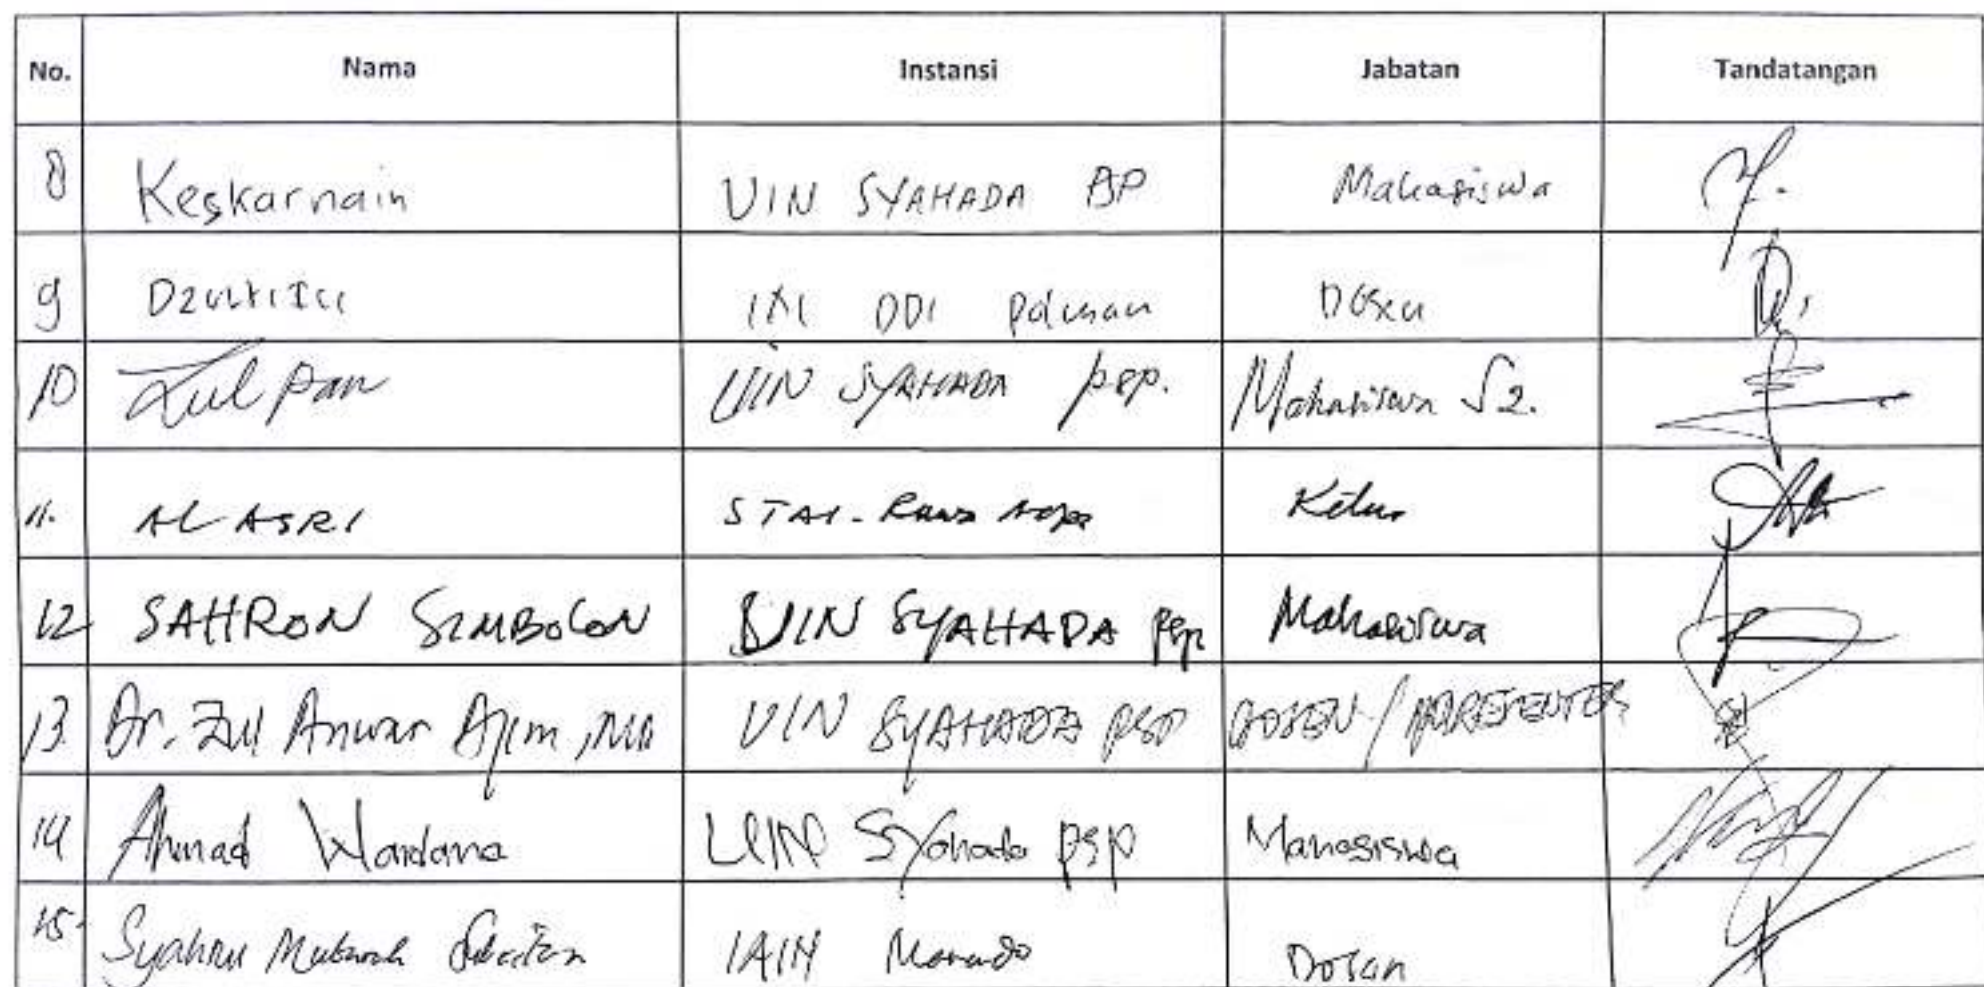 No. Nama Instansi Jabatan Tandatangan
8 Keskarnain UIN SYAHADA PSP Mahasiswa
9 IAI DDI
10 Zulpan UIN SYAHADA PSP. Mahasiswa S2.
11. AL ASRI STAI- Ketua
12 SAHRON SIMBOLON UIN SYAHADA PSP Mahasiswa
13. Dr. Zul Anwar Ajim, MA UIN SYAHADA PSP DOSEN/
14 Ahmad Wardana UIN Syahada PSP Mahasiswa
15. IAIN Manado Dosen